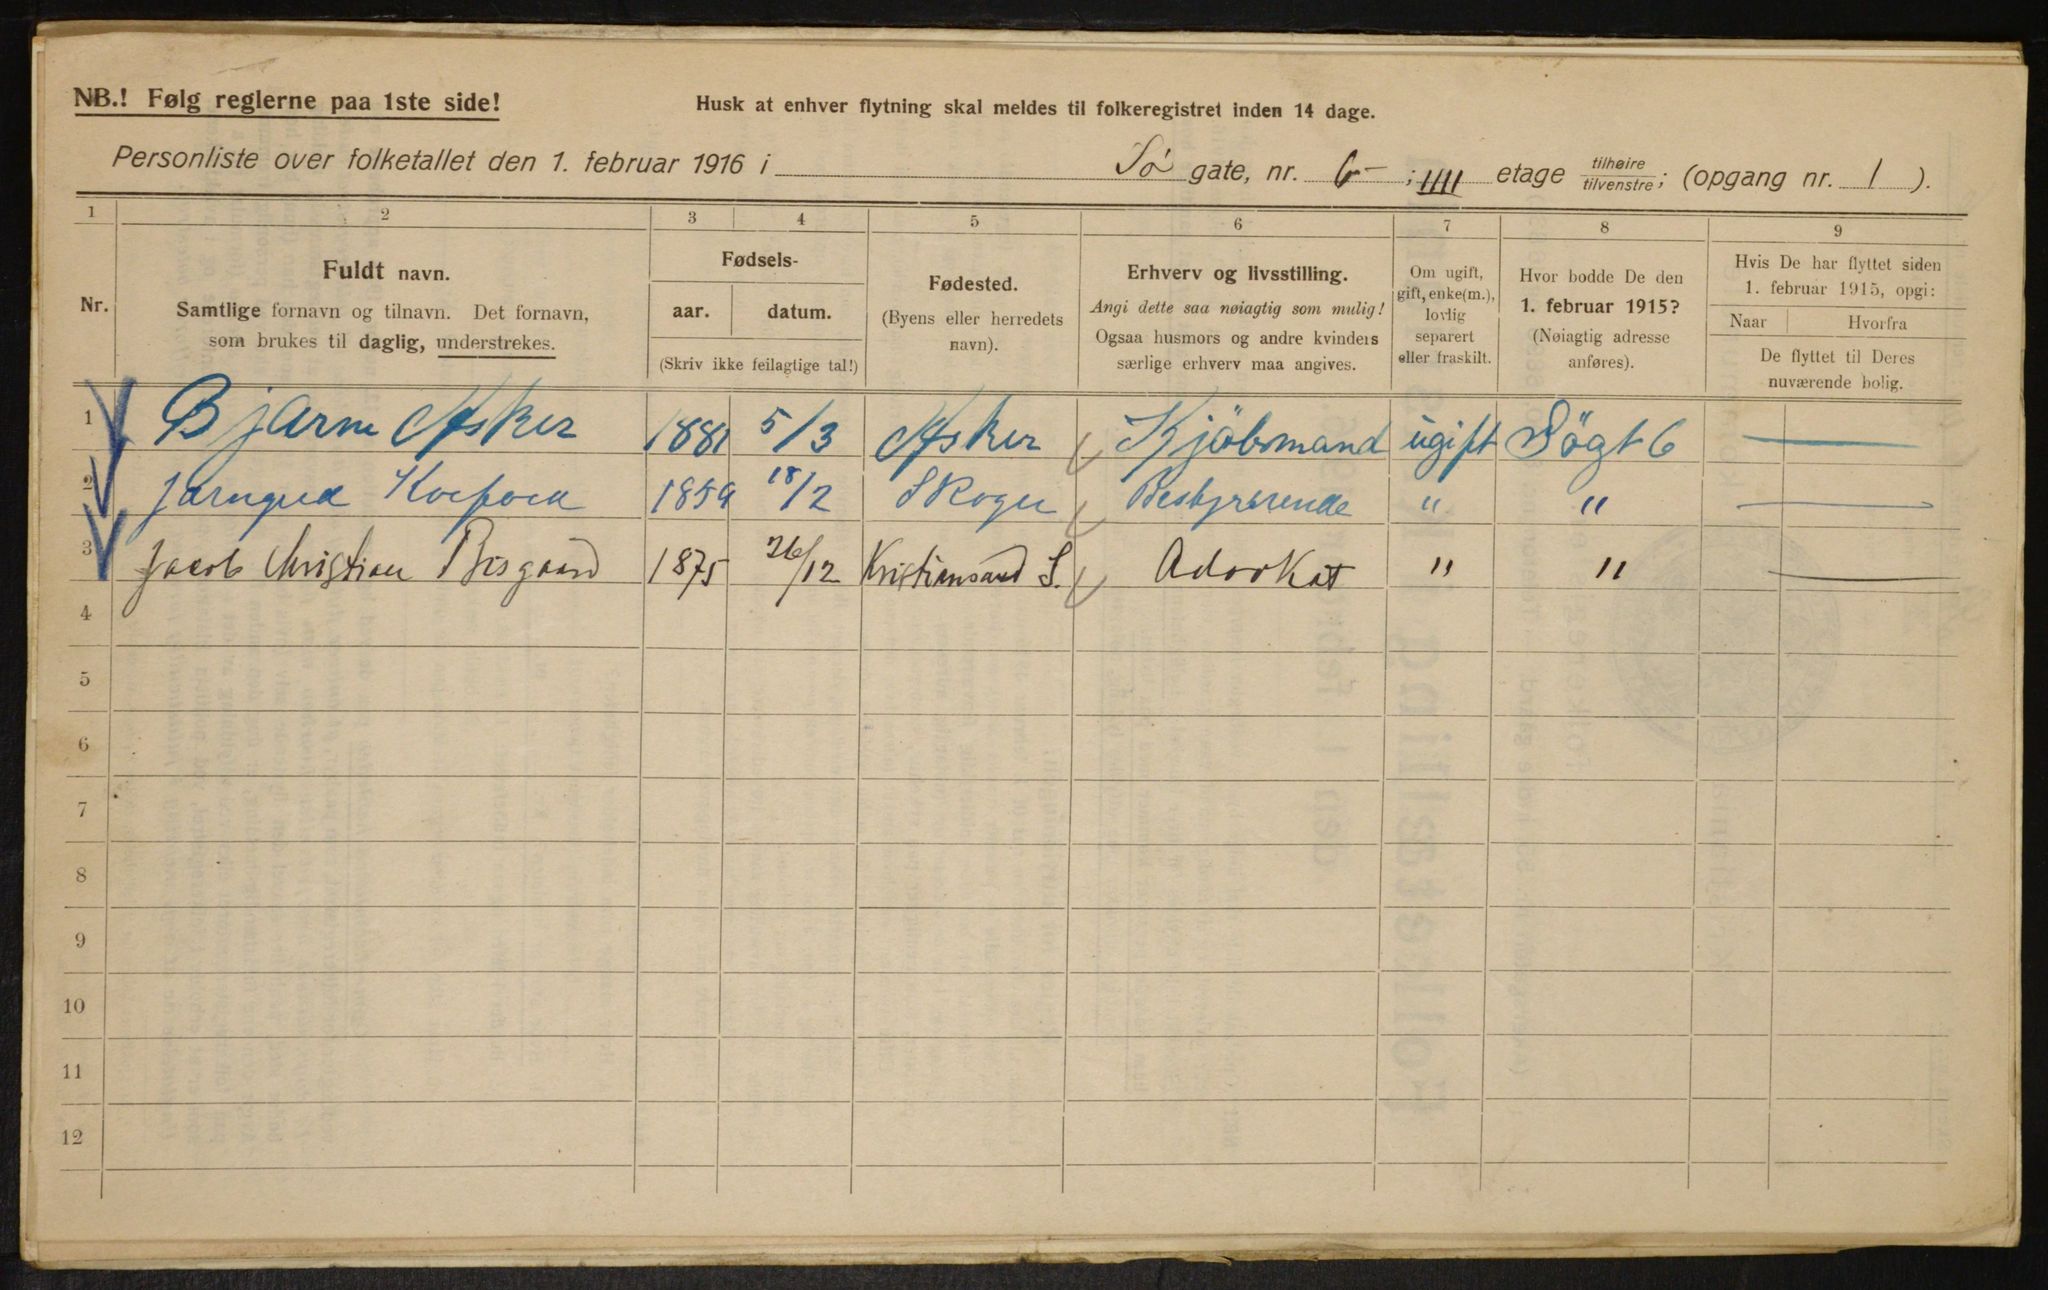 NB.! Følg reglerne paa 1ste side!
Husk at enhver flytning skal meldes til folkeregistret inden 14 dage.
Personliste over folketallet den 1. februar 1916 i Sø gate, nr. 6 ; IIII etage tilhøire / tilvenstre; (opgang nr. 1 ).
1 2 3 4 5 6 7 8 9
Nr.
Fuldt navn.
Samtlige fornavn og tilnavn. Det fornavn,
som brukes til daglig, understrekes.
Fødsels-
aar. datum.
(Skriv ikke feilagtige tal!)
Fødested.
(Byens eller herredets
navn).
Erhverv og livsstilling.
Angi dette saa nøiagtig som mulig!
Ogsaa husmors og andre kvinders
særlige erhverv maa angives.
Om ugift,
gift, enke(m.),
lovlig
separert
eller fraskilt.
Hvor bodde De den
1. februar 1915?
(Nøiagtig adresse
anføres).
Hvis De har flyttet siden
1. februar 1915, opgi:
Naar Hvorfra
De flyttet til Deres
nuværende bolig.
1 Bjarne Asker 1881 5/3 Asker Kjöbmand ugift Søgt 6 —
2 1859 18/2 Skoger " " —
3 Jacob Christian Bisgaard 1875 26/12 Kristiansand S. Advokat " " —
4
5
6
7
8
9
10
11
12